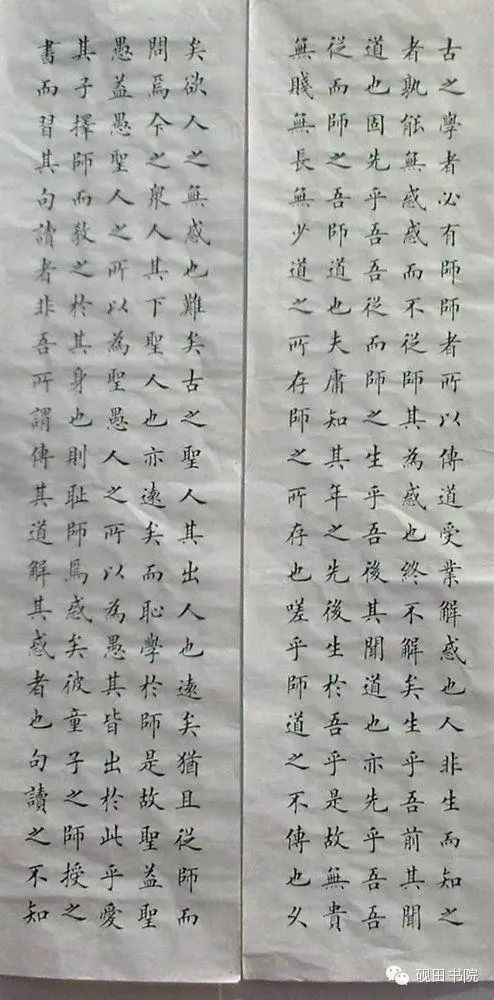 古之學者必有師師者所以傳道受業解惑也人非生而知之
者孰能無惑惑而不從師其為惑也終不解矣生乎吾前其聞
道也固先乎吾吾從而師之生乎吾後其聞道也亦先乎吾吾
從而師之吾師道也夫庸知其年之先後生於吾乎是故無貴
無賤無長無少道之所存師之所存也嗟乎師道之不傳也久
矣欲人之無惑也難矣古之聖人其出人也遠矣猶且從師而
問焉今之衆人其下聖人也亦遠矣而恥學於師是故聖益聖
愚益愚聖人之所以為聖愚人之所以為愚其皆出於此乎愛
其子擇師而教之於其身也則耻師焉惑矣彼童子之師授之
書而習其句讀者非吾所謂傳其道解其惑者也句讀之不知
砚田书院